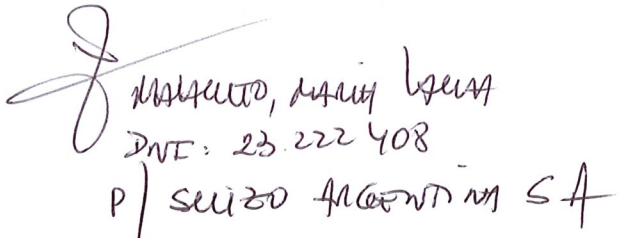 MARIA LAURA
DNI: 23.222 408
P/ SUIZO ARGENTINA SA